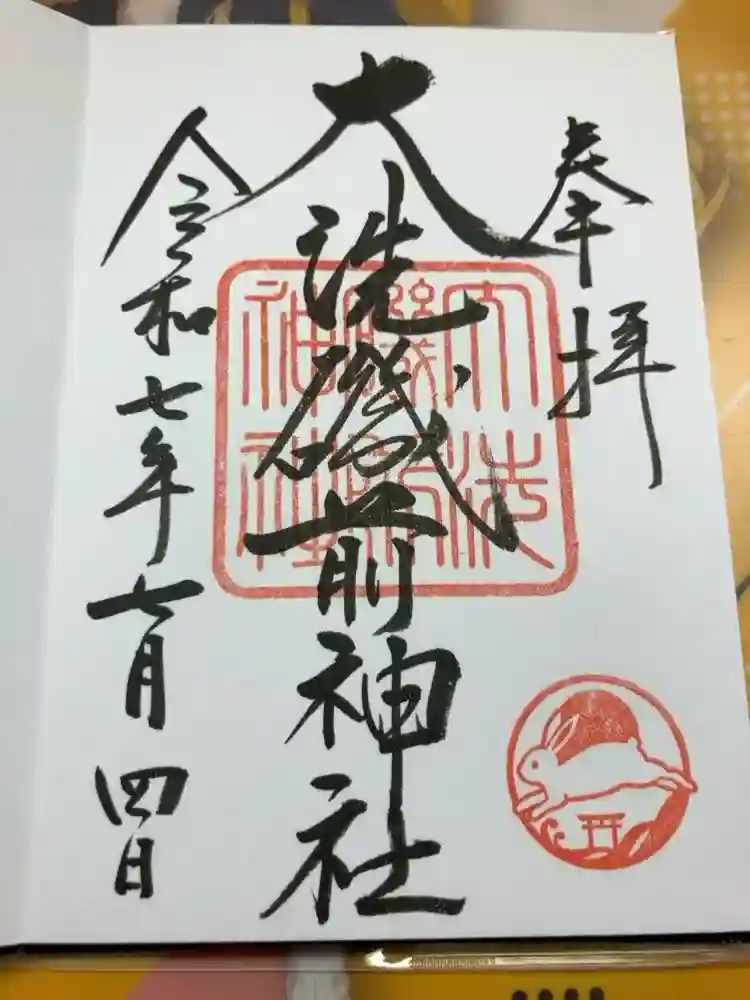 奉拝
大洗磯前神社
令和七年七月四日
大洗
磯前
神社